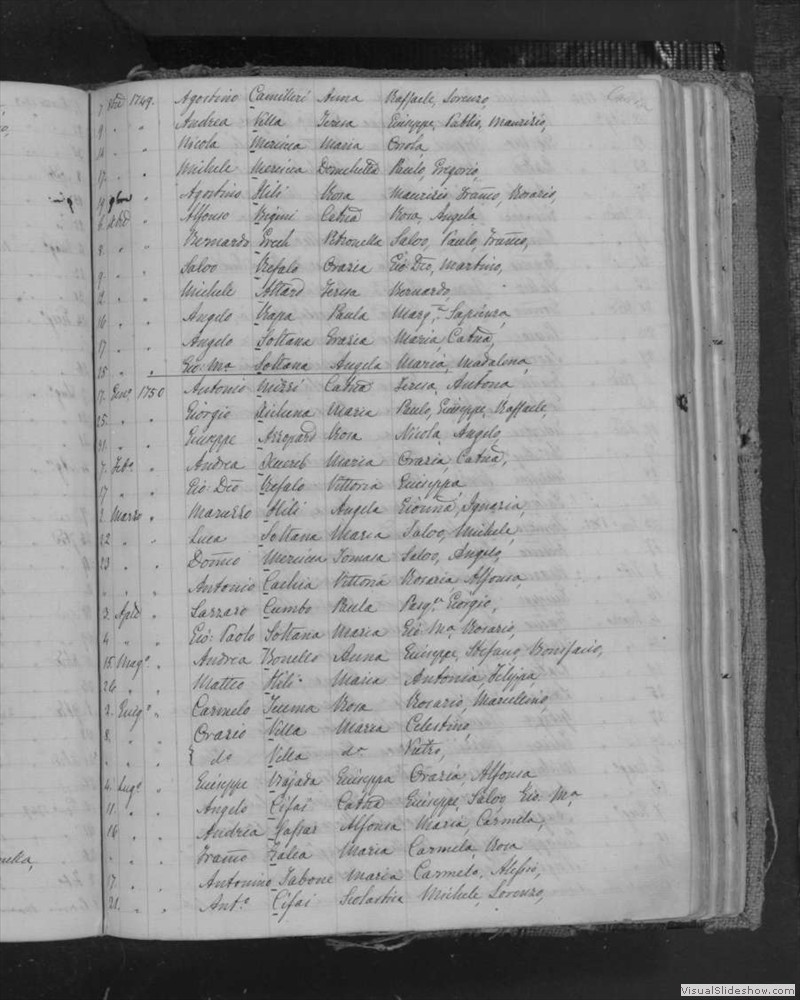 7 8bre 1749. Agostino Camilleri Anna Raffaele, Lorenzo,
9 " " Andrea Villa Teresa Giuseppe, Publio, Maurizio,
14 " " Nicola Mercieca Maria Orsola
17. " " Michele Mercieca Domenichella Paulo, Gregorio,
19 9bre " Agostino Hili Rosa Maurizio, Franco, Rosario,
6 Xbre " Alfonso Rigini Catna Rosa, Angela
8. " " Bernardo Grech Petronella Salvo, Paulo, Franco,
9 " " Salvo Refalo Grazia Gio Dco, Martino,
12 " " Michele Attard Teresa Bernardo,
16 " " Angelo Rapa Paula Marga, Sapienza,
17 " " Angelo Soltana Grazia Maria, Catna,
25 " " Gio: Ma Soltana Angela Maria, Madalena,
7. Geno 1750 Antonio Mizzi Catna Teresa, Antona
25. " " Giorgio Xicluna Maria Paulo, Giuseppe, Raffaele,
31. " " Giuseppe Azzopard Rosa Nicola, Angelo,
7. Febo " Andrea Xuereb Maria Grazia, Catna,
17 " " Gio: Dco Refalo Vittoria Giuseppa,
2. Marzo " Maruzzo Hili Angela Gionna, Ignazia,
22 " " Luca Soltana Maria Salvo, Michele,
23 " " Domco Mercieca Tomasa Salvo, Angelo,
" " " Antonio Cachia Vittoria Rosaria Alfonsa,
3. Aple " Lazzaro Cumbo Paula Pasqa Giorgio,
4 " " Gio: Paolo Soltana Maria Gio. Ma Rosario,
15. Mago " Andrea Bonello Anna Giuseppe, Stefano, Bonifacio,
26 " " Matteo Hili Maria Antonia, Filippa
2. Giugo " Carmelo Teuma Rosa Rosario, Marcellino,
8. " " Orazio Villa Maria Celestino,
" " " { do Villa do Pietro,
4. Lugo " Giuseppe Vajada Giuseppa Grazia, Alfonsa
11. " " Angelo Cifai Catna Giuseppe, Salvo, Gio. Ma
16. " " Andrea Gassar Alfonsa Maria, Carmela,
" " " Franco Galea Maria Carmela, Rosa
17. " " Antonino Tabone Maria Carmelo, Alessio,
21. " " Anto Cifai Scolastica Michele, Lorenzo,
VisualSlideshow.com